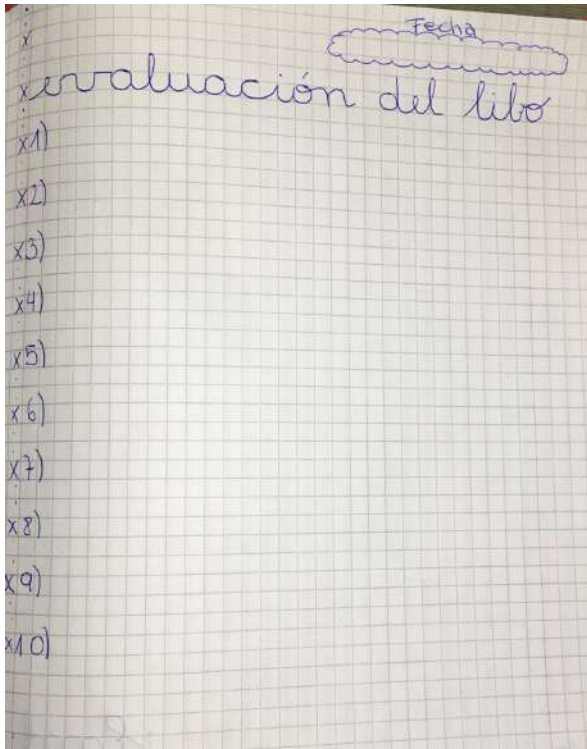 Fecha
x
x evaluación del libo
x1)
x2)
x3)
x4)
x5)
x6)
x7)
x8)
x9)
x10)